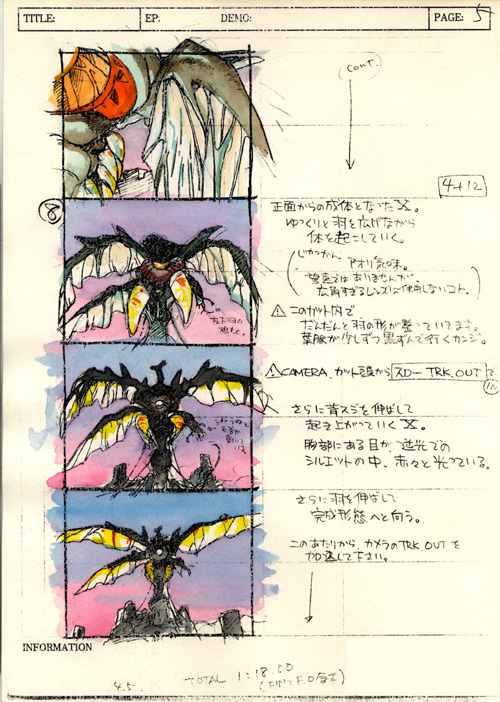 TITLE: EP: DEMO: PAGE: 5
cont.
4+12
8
正面からの成体となった
ゆっくりと羽を広げながら
体を起こしていく。
じゃっかん
アオリ気味。
ありませんが、
広角すぎるレンズは使用しないコト。
このカット内で
だんだんと羽の形が整っていきます。
葉脈が少しずつ黒ずんで行くカンジ。
CAMERA、カット頭から スローTRK.OUT で
さらに背スジを伸ばして
起き上がっていく
胸部にある目が逆光での
シルエットの中、赤々と光っている。
さらに羽を伸ばして
完成形態へと向う。
このあたりから、カメラのTRK.OUTを
加速して下さい。
INFORMATION
4.5.
TOTAL 1:18:00